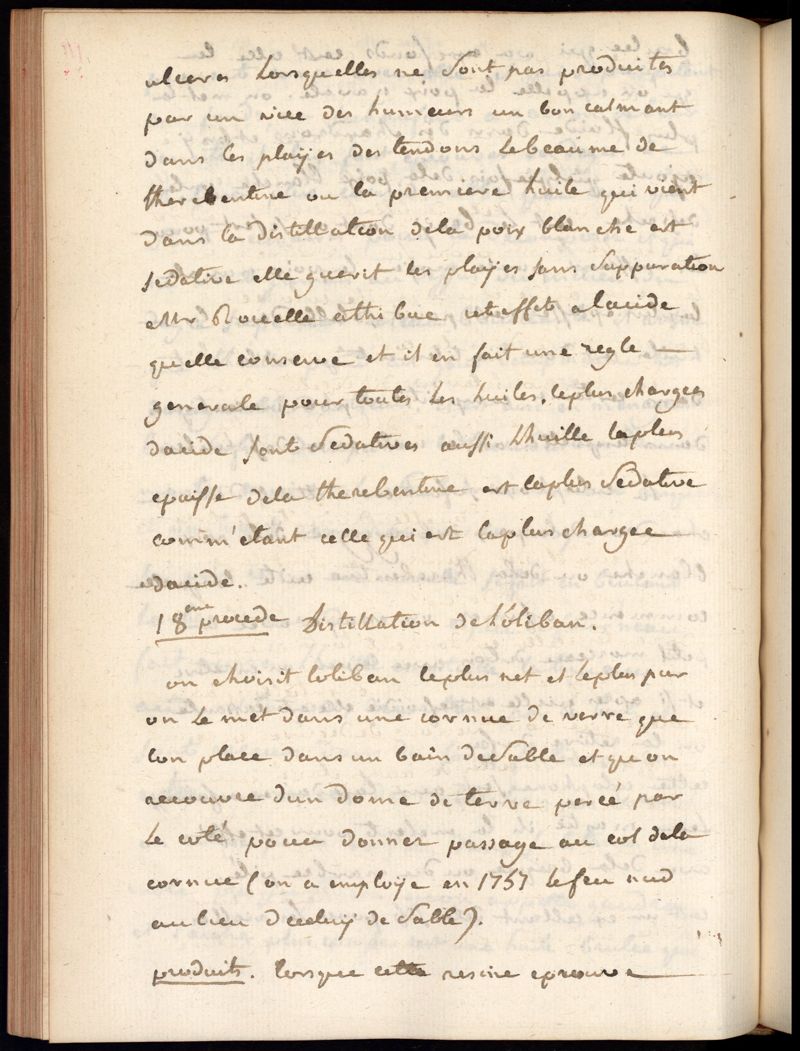 ulceres Lorsquelles ne sont pas produites
par un vice des humeurs un bon calmant
dans les playes des tendons Lebeaume de
therebentine ou la premiere huile qui vient
dans la distillation dela poix blanche est
sedative elle guerit les playes sans suppuration
Mr Rouelle attribue cet effet a lacide
quelle conserve et il en fait une regle
generale pour toutes les huiles, leplus chargees
dacide sont sedatives aussi Lhuille laplus
epaisse dela therebentine est laplus sedative
comm'etant celle qui est laplus chargee
dacide.
18eme procede Distillation de l'oliban.
on choisit loliban leplus net et leplus pur
on Le met dans une cornue de verre que
lon place dans un bain desable et que on
recouvre dun dome de terre percé par
Le coté pour donner passage au col dela
cornue (on a employe en 1757 lefeu nud
aulieu deceluy de sable).
produits. Lorsque cette resine eprouve